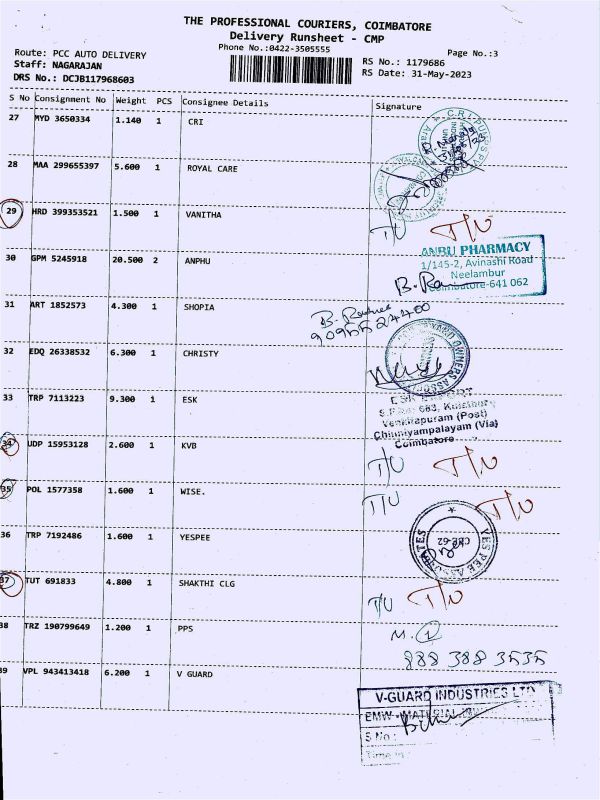 THE PROFESSIONAL COURIERS, COIMBATORE
Delivery Runsheet - CMP
Phone No.:0422-3505555
Page No.:3
Route: PCC AUTO DELIVERY
Staff: NAGARAJAN
DRS No.: DCJB117968603
RS No.: 1179686
RS Date: 31-May-2023
S No Consignment No Weight PCS Consignee Details Signature
27 MYD 3650334 1.140 1 CRI
28 MAA 299655397 5.600 1 ROYAL CARE
29 HRD 399353521 1.500 1 VANITHA T/U T/U
30 GPM 5245918 20.500 2 ANPHU
ANBU PHARMACY
1/145-2, Avinashi Road
Neelambur
Coimbatore-641 062
31 ART 1852573 4.300 1 SHOPIA
32 EDQ 26338532 6.300 1 CHRISTY
33 TRP 7113223 9.300 1 ESK
Venkitapuram (Post)
Chinniyampalayam (Via)
Coimbatore
34 UDP 15953128 2.600 1 KVB T/U T/U
35 POL 1577358 1.600 1 WISE. T/U T/U
36 TRP 7192486 1.600 1 YESPEE
37 TUT 691833 4.800 1 SHAKTHI CLG T/U T/U
38 TRZ 190799649 1.200 1 PPS M. 1
39 VPL 943413418 6.200 1 V GUARD
V-GUARD INDUSTRIES LTD
S No :